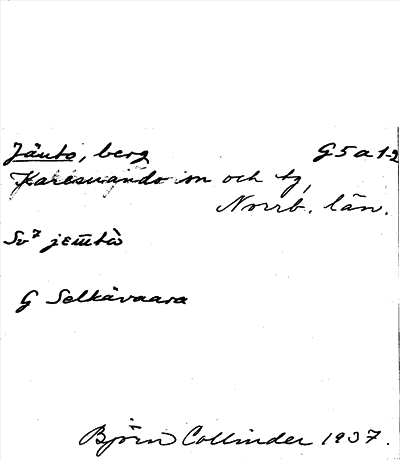 Jäuto, berg G5a1-2
Karesuando sn och tg,
Norrb. län.
Sv⁷
G Selkävaara
Björn Collinder 1937.